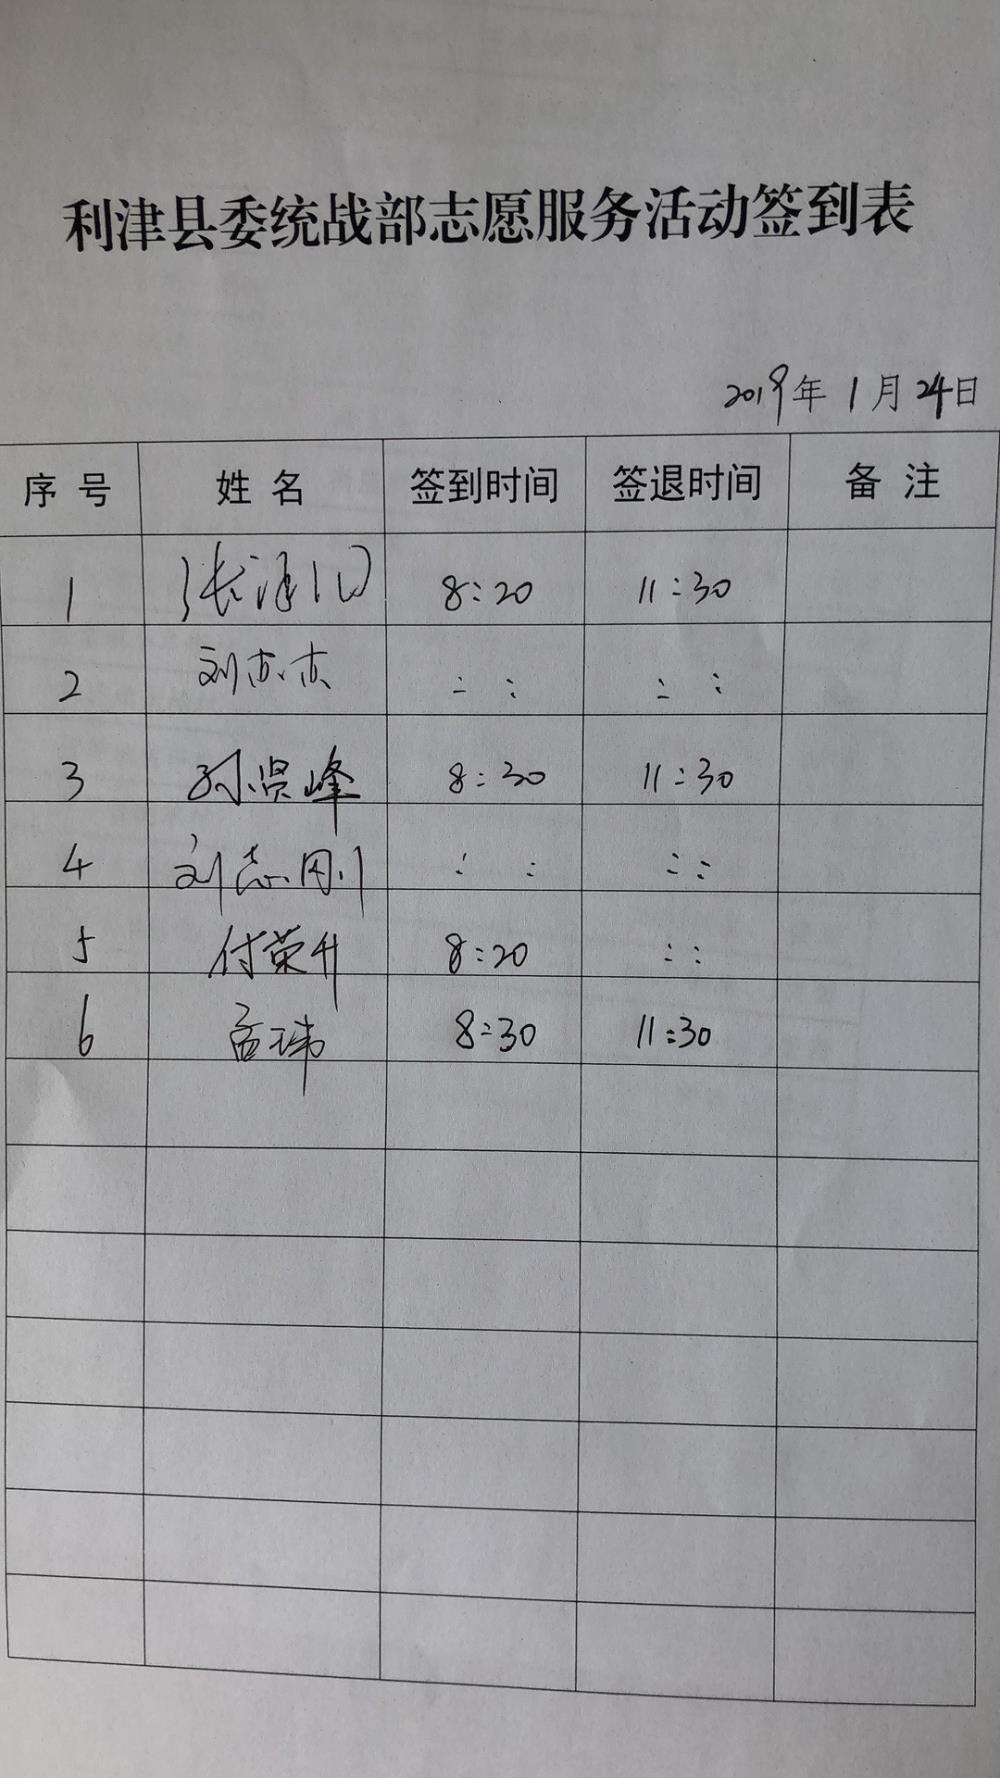 利津县委统战部志愿服务活动签到表
2019年 1月 24日
序号 姓名 签到时间 签退时间 备注
1 张 8:20 11:30
2 刘 : : : :
3 孙 峰 8:30 11:30
4 刘志刚 : : : :
5 付荣升 8:20 : :
6 孟玮 8:30 11:30